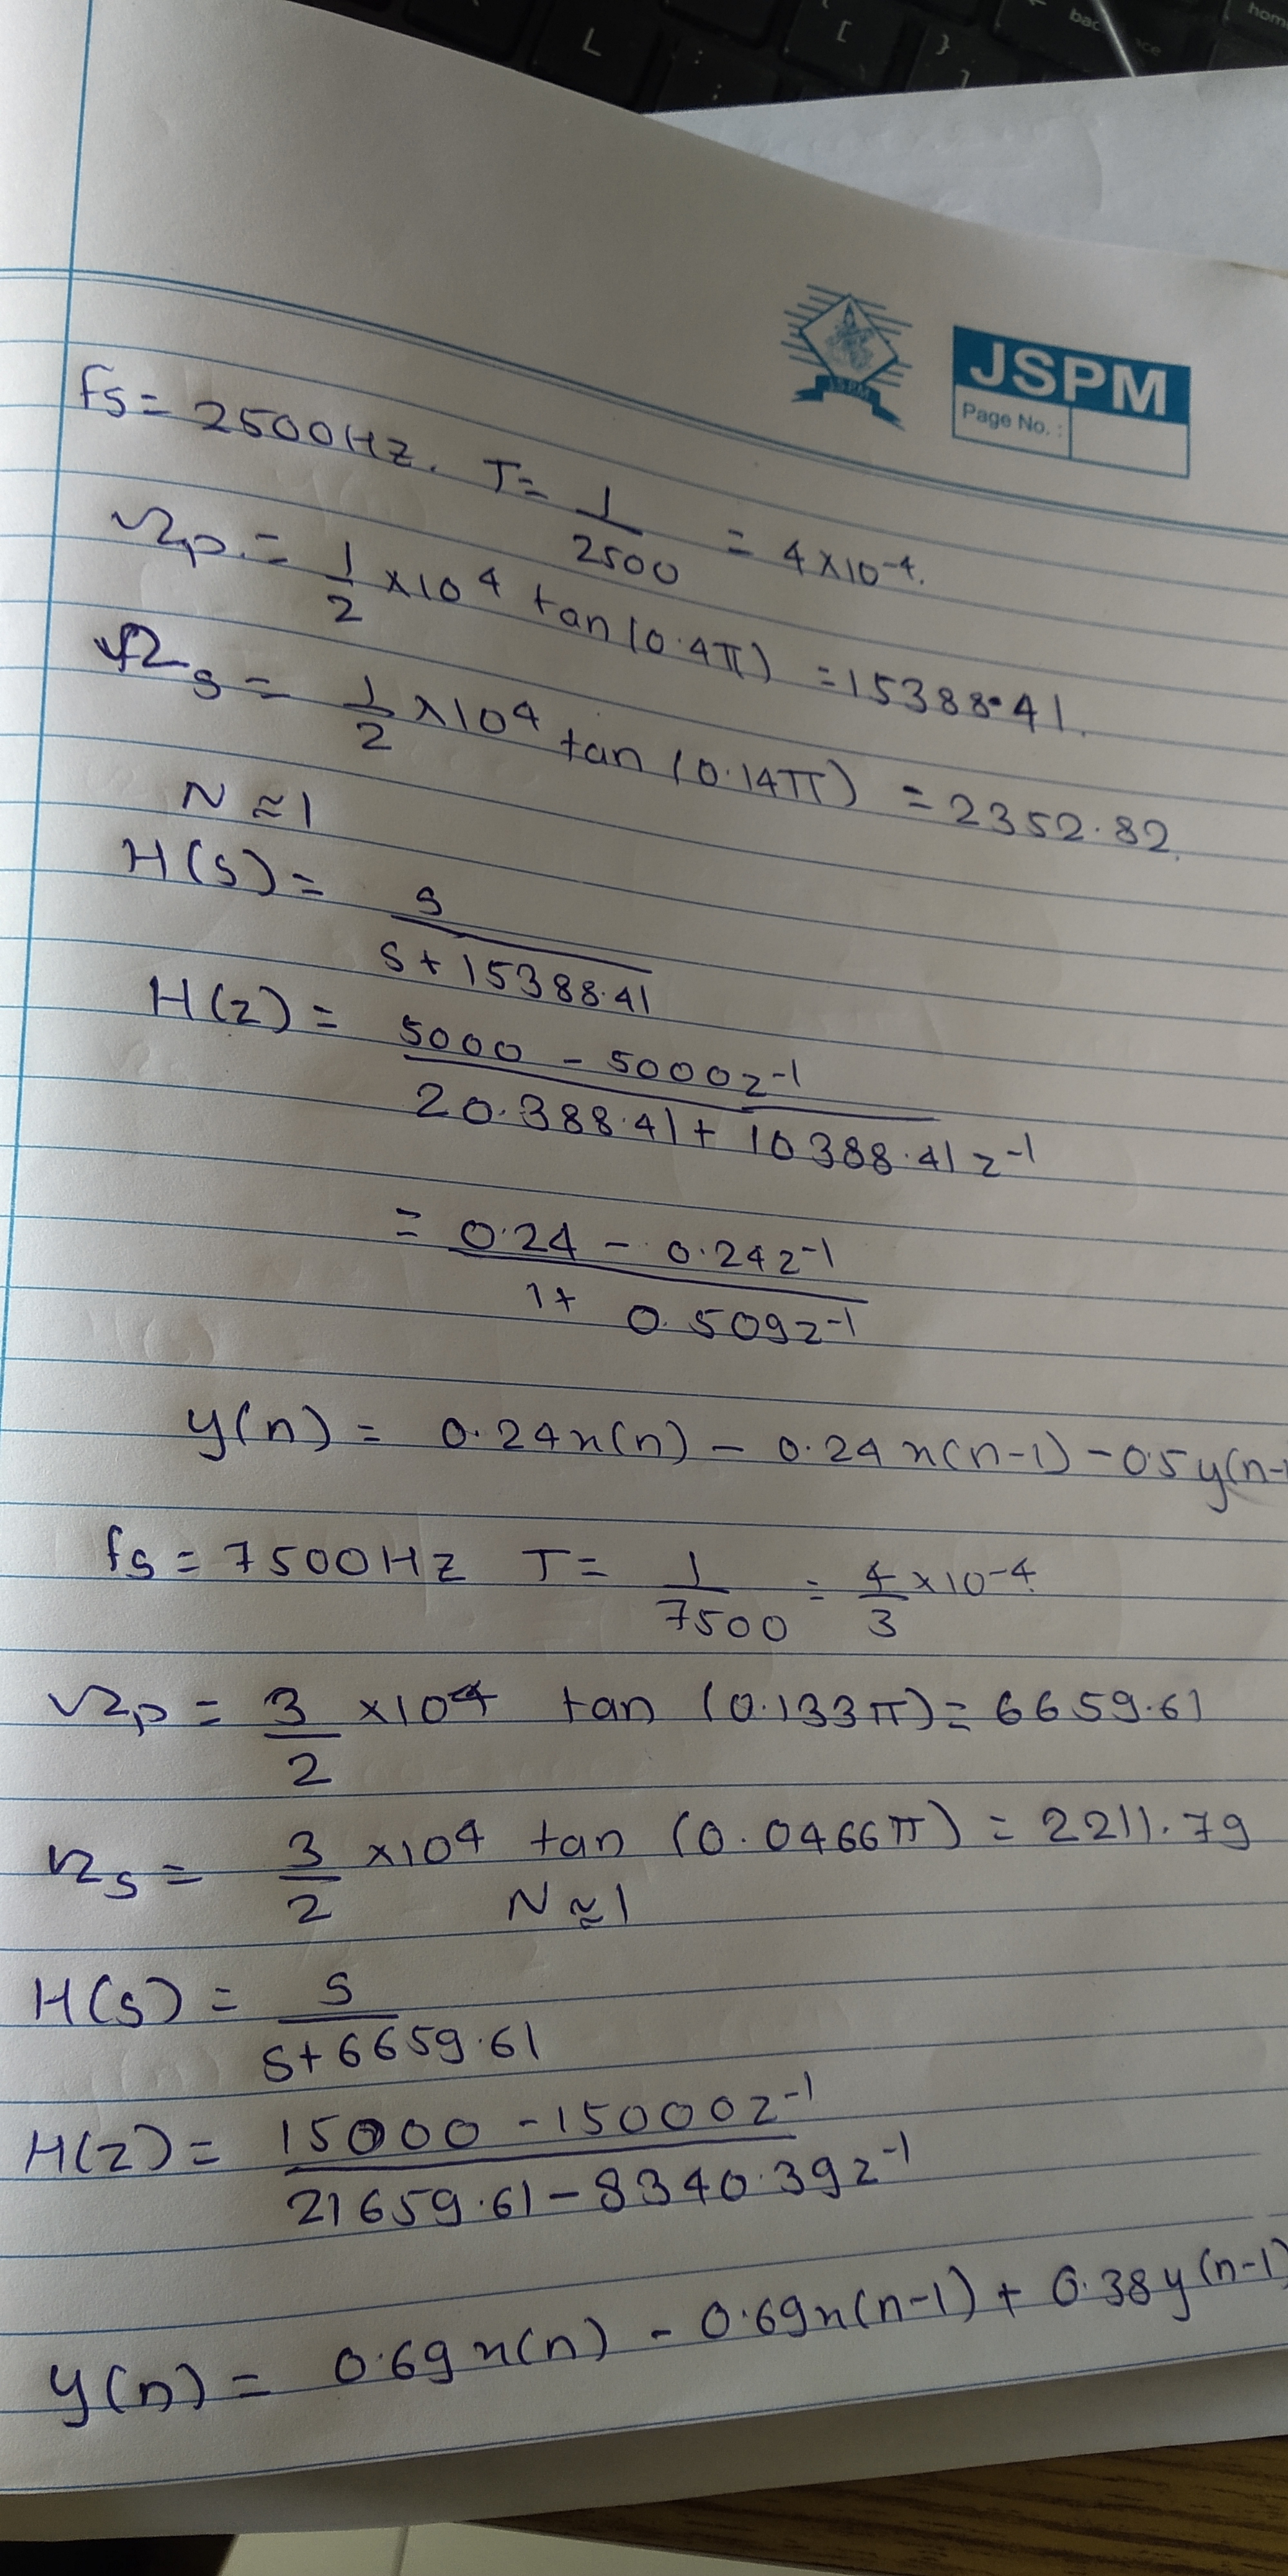 L
[
}
]
;
bac
ce
hom
JSPM
JSPM
Page No. :
fs = 2500Hz. T = 1/2500 = 4×10⁻⁴.
Ωp. = 1/2 ×10⁴ tan(0.4π) = 15388.41.
Ωs = 1/2 ×10⁴ tan(0.14π) = 2352.82.
N ≈ 1
H(s) = s/(s + 15388.41)
H(z) = (5000 - 5000z⁻¹)/(20.388.41 + 10388.41z⁻¹)
= (0.24 - 0.24z⁻¹)/(1 + 0.509z⁻¹)
y(n) = 0.24x(n) - 0.24x(n-1) - 0.5y(n-1
fs = 7500Hz T = 1/7500 = 4/3 ×10⁻⁴.
Ωp = 3/2 ×10⁴ tan(0.133π) = 6659.61
Ωs = 3/2 ×10⁴ tan(0.0466π) = 2211.79
N ≈ 1
H(s) = s/(s + 6659.61)
H(z) = (15000 - 15000z⁻¹)/(21659.61 - 8340.39z⁻¹)
y(n) = 0.69x(n) - 0.69x(n-1) + 0.38y(n-1)